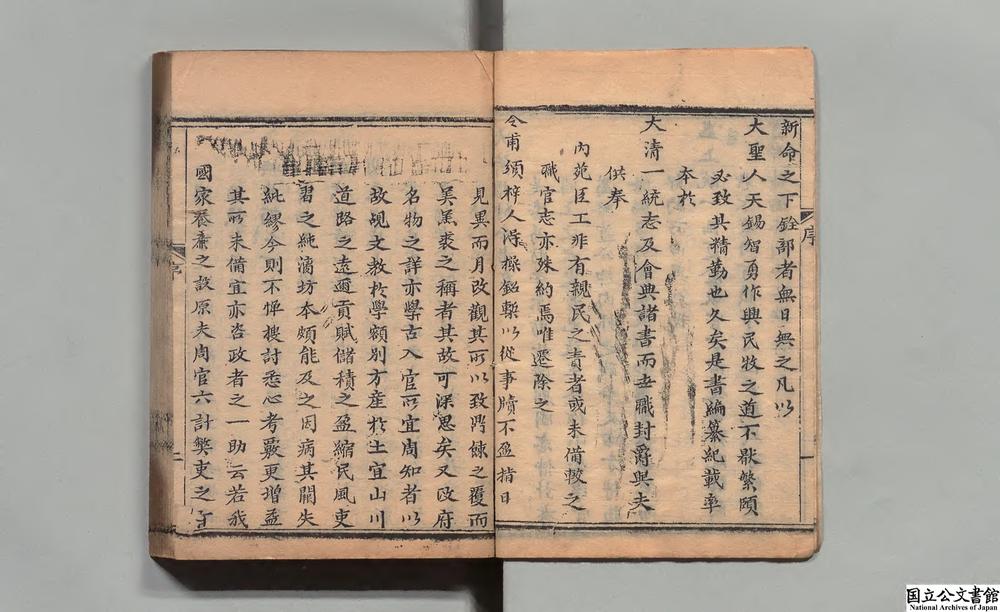 新命之下銓部者無日無之凡以
大聖人天錫智勇作興民牧之道不厭繁賾
必致其精勤也久矣是書編纂紀載率
本於
大清一統志及會典諸書而世職封爵與夫
供奉
內苑臣工非有親民之責者或未備較之
職官志亦殊約焉唯遷除之
令甫頒梓人得操鉛槧以從事牘不盈指日
見異而月改觀其所以致鬥餗之覆而
羔裘之稱者其故可深思矣又政府
名物之詳亦學古入官所宜周知者以
故規文教於學額別方產於土宜山川
道路之遠邇貢賦儲積之盈縮民風吏
習之純漓坊本頗能及之因病其闕失
紕繆今則不憚搜討悉心考覈更增益
其所未備宜亦咨政者之一助云若我
國家養廉之設原夫周官六計弊吏之
序
一
序
二
国立公文書館
National Archives of Japan